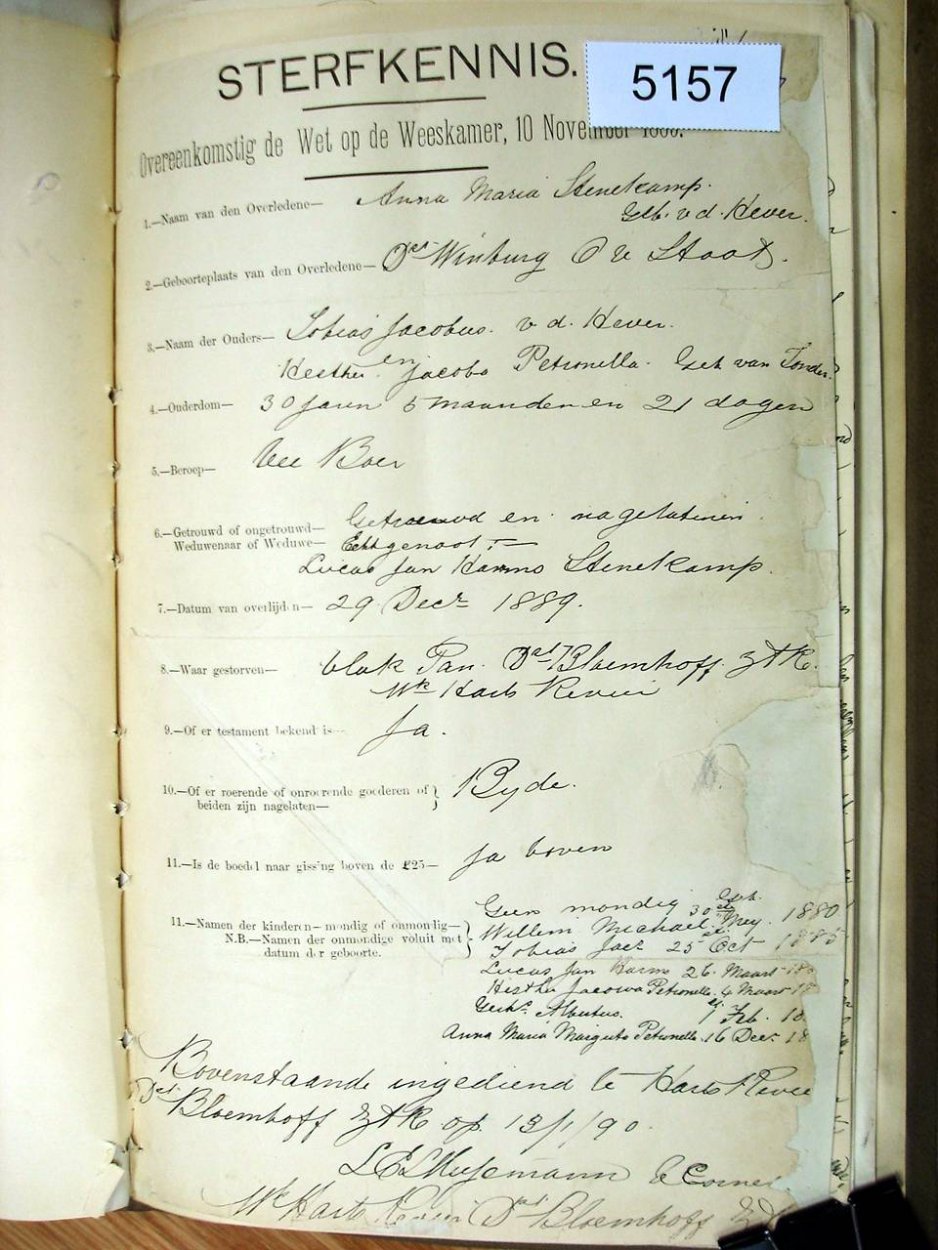 STERFKENNIS.
5157
Overeenkomstig de Wet op de Weeskamer, 10 November
1.—Naam van den Overledene— Anna Maria Stenekamp.
Geb. v d. Hever.
2.—Geboorteplaats van den Overledene— Dst Winburg O V Staat.
3.—Naam der Ouders— Tobias Jacobus. v d. Hever.
en
Hester Jacoba Petronella. Geb van Tonder.
4.—Ouderdom— 30 Jaren 5 maanden en 21 dagen
5.—Beroep— Vee Boer
6.—Getrouwd of ongetrouwd— Getrouwd en nagelatenen
Weduwenaar of Weduwe— Echtgenoot :—
Lucas Jan Harms Stenekamp.
7.—Datum van overlijden— 29 Decr 1889.
8.—Waar gestorven— Vlak Pan. Dst Bloemhoff. Z A R.
Wk Harts Revier
9.—Of er testament bekend is— Ja.
10.—Of er roerende of onroerende goederen of } Byde.
beiden zijn nagelaten—
11.—Is de boedel naar gissing boven de £25— Ja boven
11.—Namen der kinderen—mondig of onmondig— Geen mondig Geb.
N.B.—Namen der onmondige voluit met Willem Michael 30 Mey. 1880
datum der geboorte. Tobias Jacs 25 Oct 1885
Lucas Jan Harms 26 Maart
Hester Jacowa Petronella 4 Maart
Albertus. 1 Feb.
Anna Maria Margreta Petronella 16 Decr 18
Bovenstaande ingediend te Harts Revier
Dst Bloemhoff Z A R op 13/1/90.
Wk Harts Revier Dst Bloemhoff